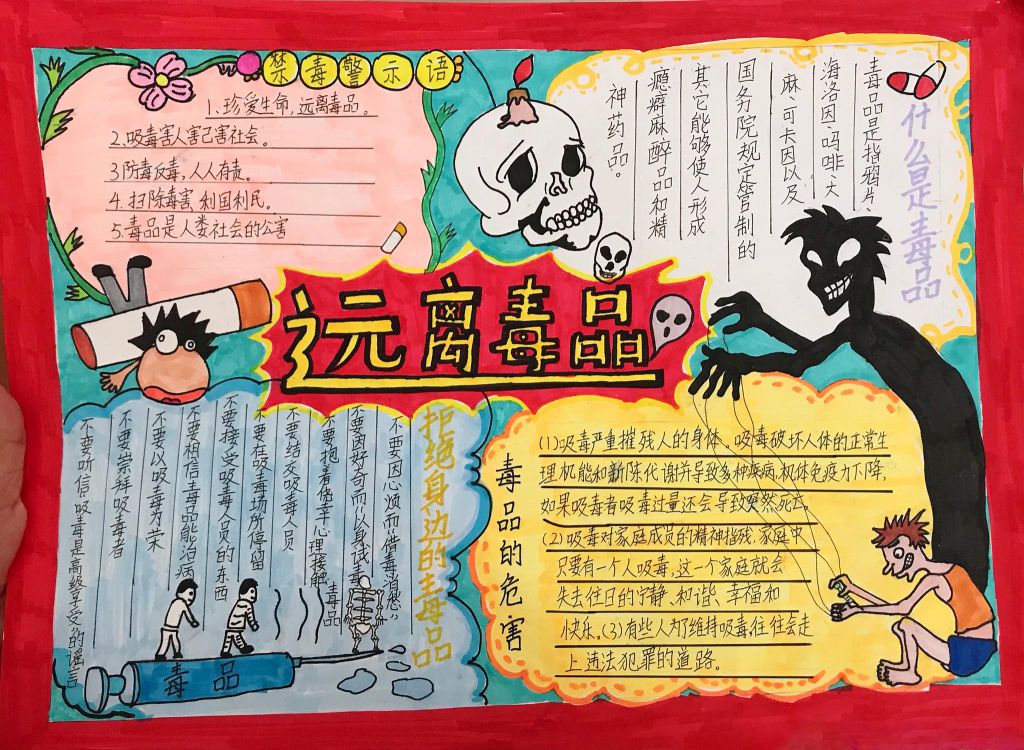 远离毒品
禁毒警示语
1、珍爱生命,远离毒品。
2、吸毒害人害己害社会。
3防毒反毒,人人有责。
4.扫除毒害,利国利民。
5.毒品是人类社会的公害
什么是毒品
毒品是指鸦片、
海洛因、吗啡、大
麻、可卡因以及
国务院规定管制的
其它能够使人形成
瘾癖麻醉品和精
神药品。
拒绝身边的毒品
不要因心烦而“借毒消愁”
不要因好奇而“以身试毒”
不要抱着侥幸心理接触
毒品
不要结交吸毒人员
不要在吸毒场所停留
不要接受吸毒人员的东西
不要相信毒品能治病
不要以吸毒为荣
不要崇拜吸毒者
不要听信吸毒是高级享受的谣言
毒品
毒品的危害
(1)吸毒严重摧残人的身体、吸毒破坏人体的正常生
理机能和新陈代谢并导致多种疾病,机体免疫力下降,
如果吸毒者吸毒过量还会导致突然死亡。
(2)吸毒对家庭成员的精神摧残,家庭中
只要有一个人吸毒,这一个家庭就会
失去往日的宁静、和谐、幸福和
快乐。(3)有些人为了维持吸毒,往往会走
上违法犯罪的道路。